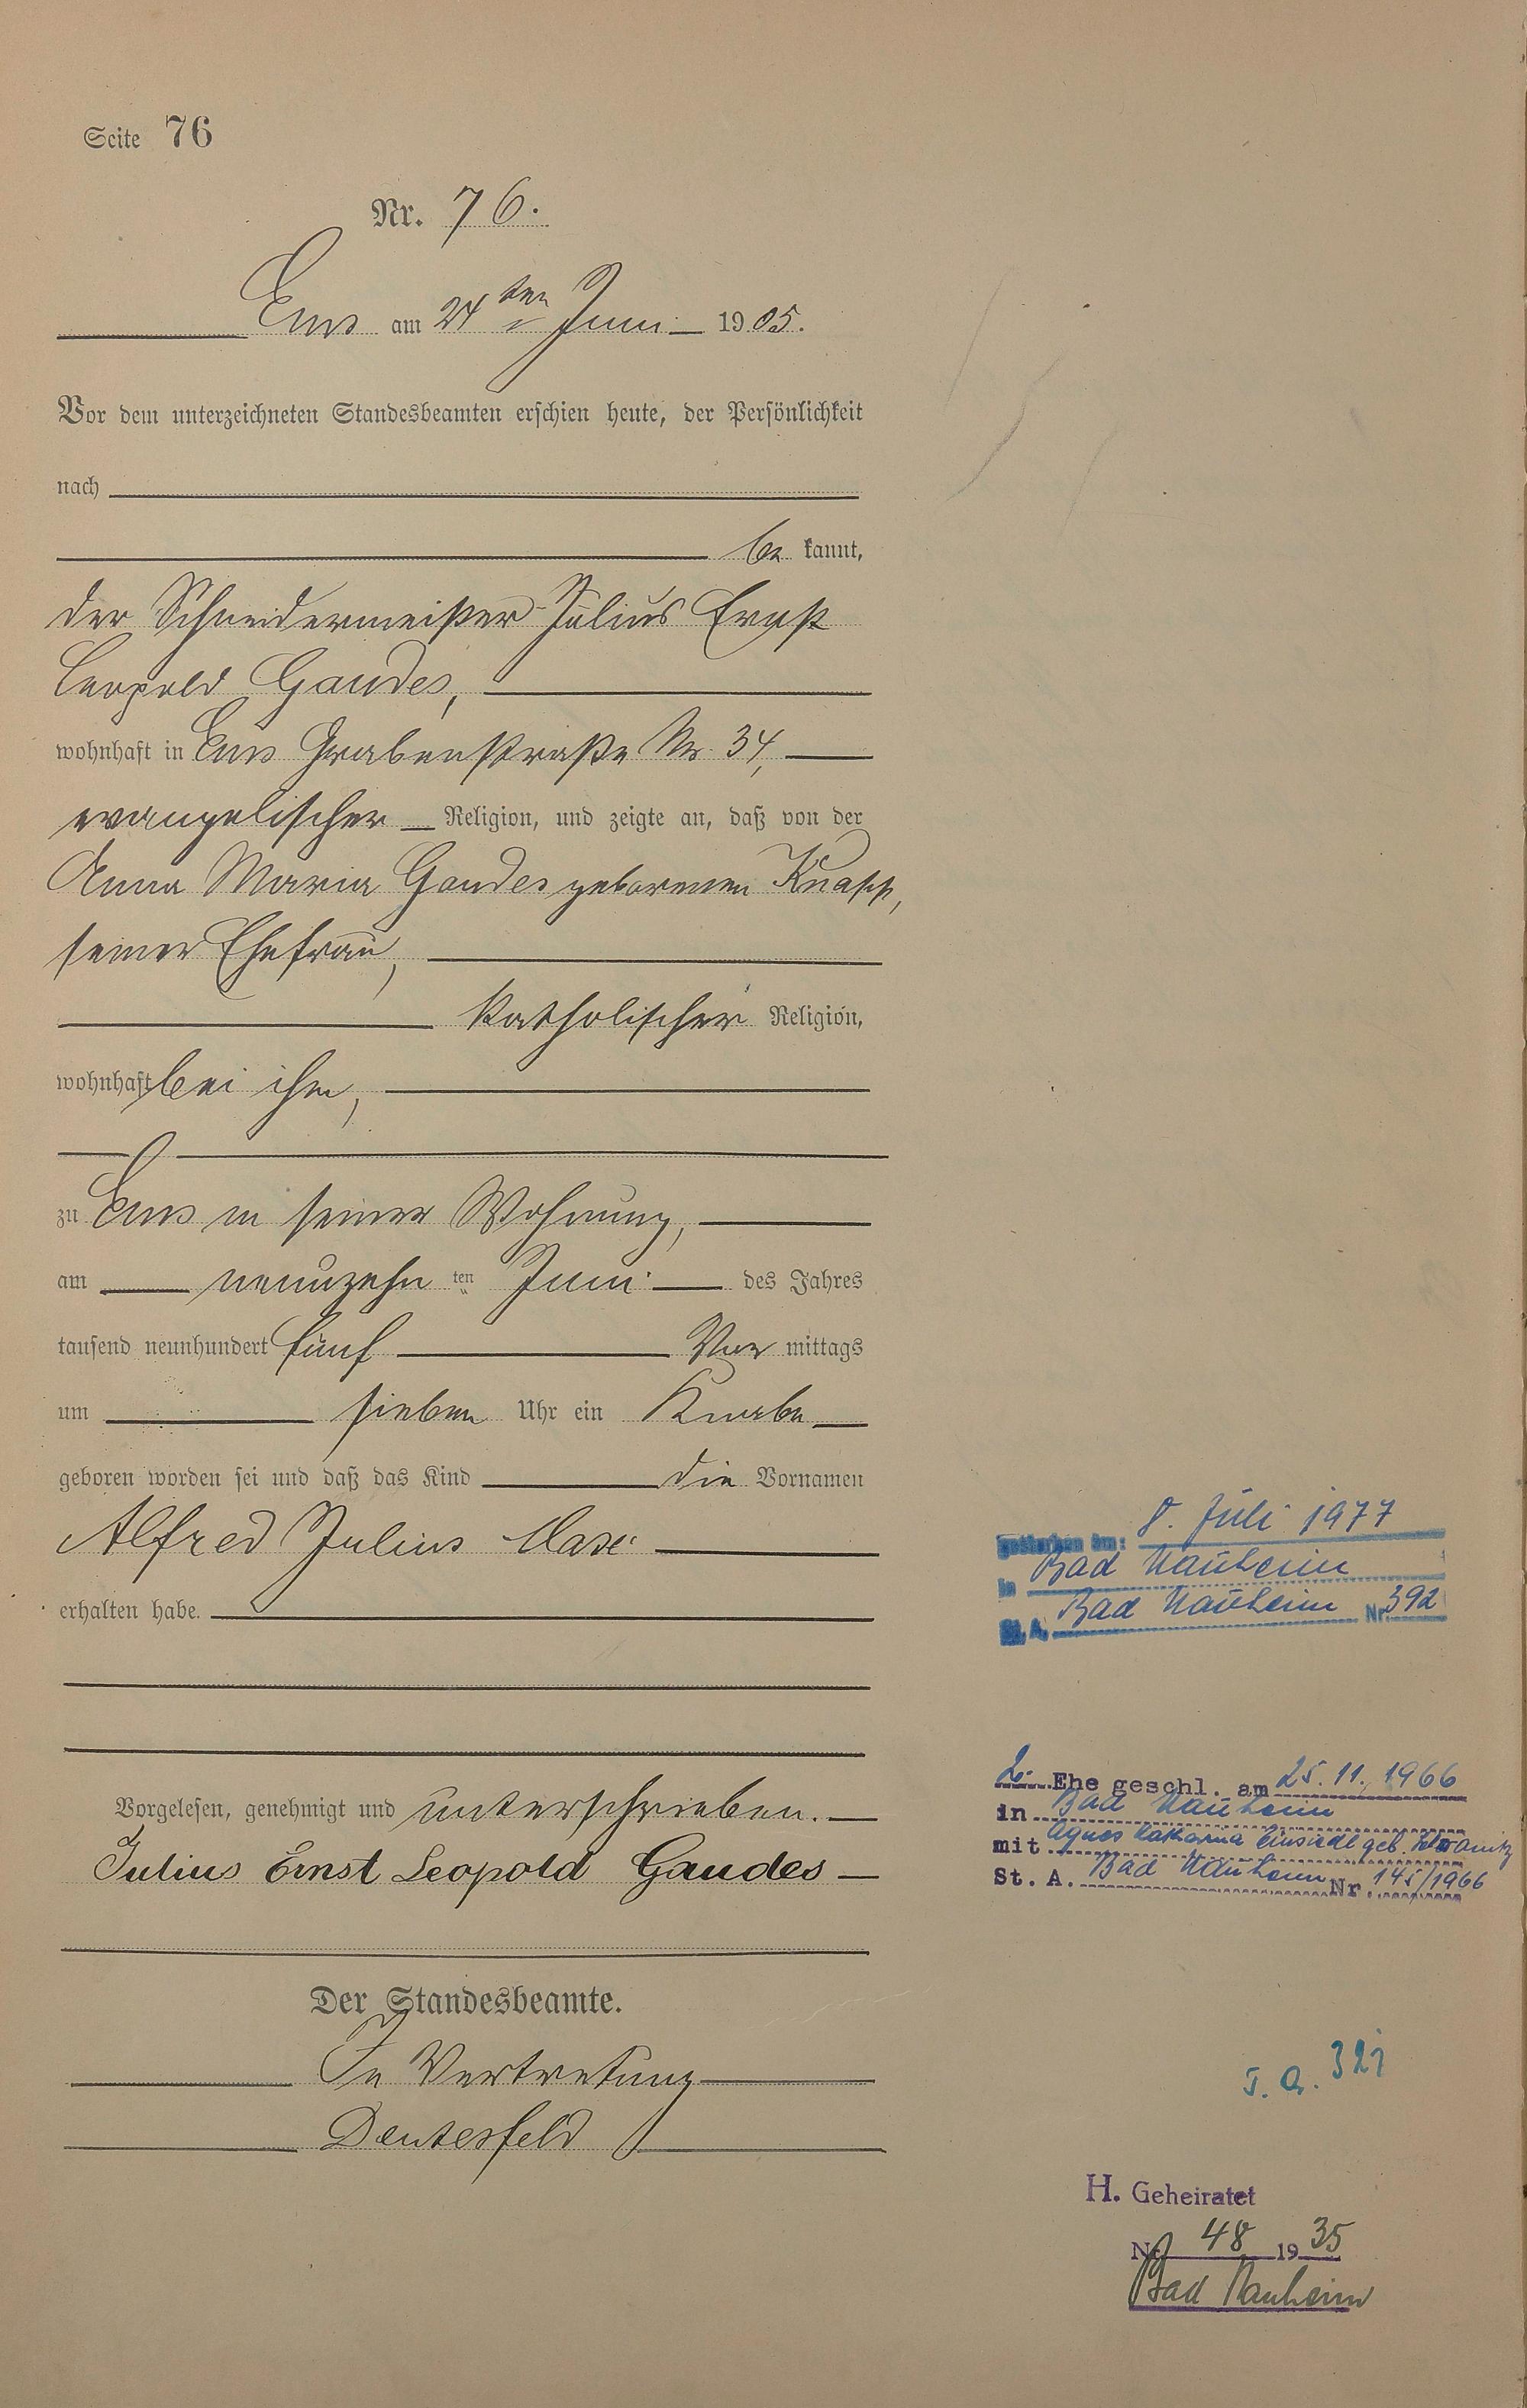 Seite 76
Nr. 76.
Ems am 24ten Juni 1905.
Vor dem unterzeichneten Standesbeamten erschien heute, der Persönlichkeit
nach
be kannt,
der Schneidermeister Julius Ernst
Leopold Gandes,
wohnhaft in Ems Grabenstraße Nr. 34,
evangelischer Religion, und zeigte an, daß von der
Anna Maria Gandes geborenen Knapp,
seiner Ehefrau,
katholischer Religion,
wohnhaft bei ihm,
zu Ems in seiner Wohnung,
am neunzehn ten Juni des Jahres
tausend neunhundert fünf Vor mittags
um sieben Uhr ein Knabe
geboren worden sei und daß das Kind die Vornamen
Alfred Julius
erhalten habe.
Vorgelesen, genehmigt und unterschrieben.
Julius Ernst Leopold Gandes
Der Standesbeamte.
In Vertretung
Deutesfeld
gestorben am: 8. Juli 1977
in Bad Nauheim
St. A. Bad Nauheim Nr. 392
2. Ehe geschl. am 25.11.1966
in Bad Nauheim
mit Agnes Katharina Einsiedl geb.
St. A. Bad Nauheim Nr. 145/1966
T. A. 321
H. Geheiratet
Nr. 48 1935
Bad Nauheim